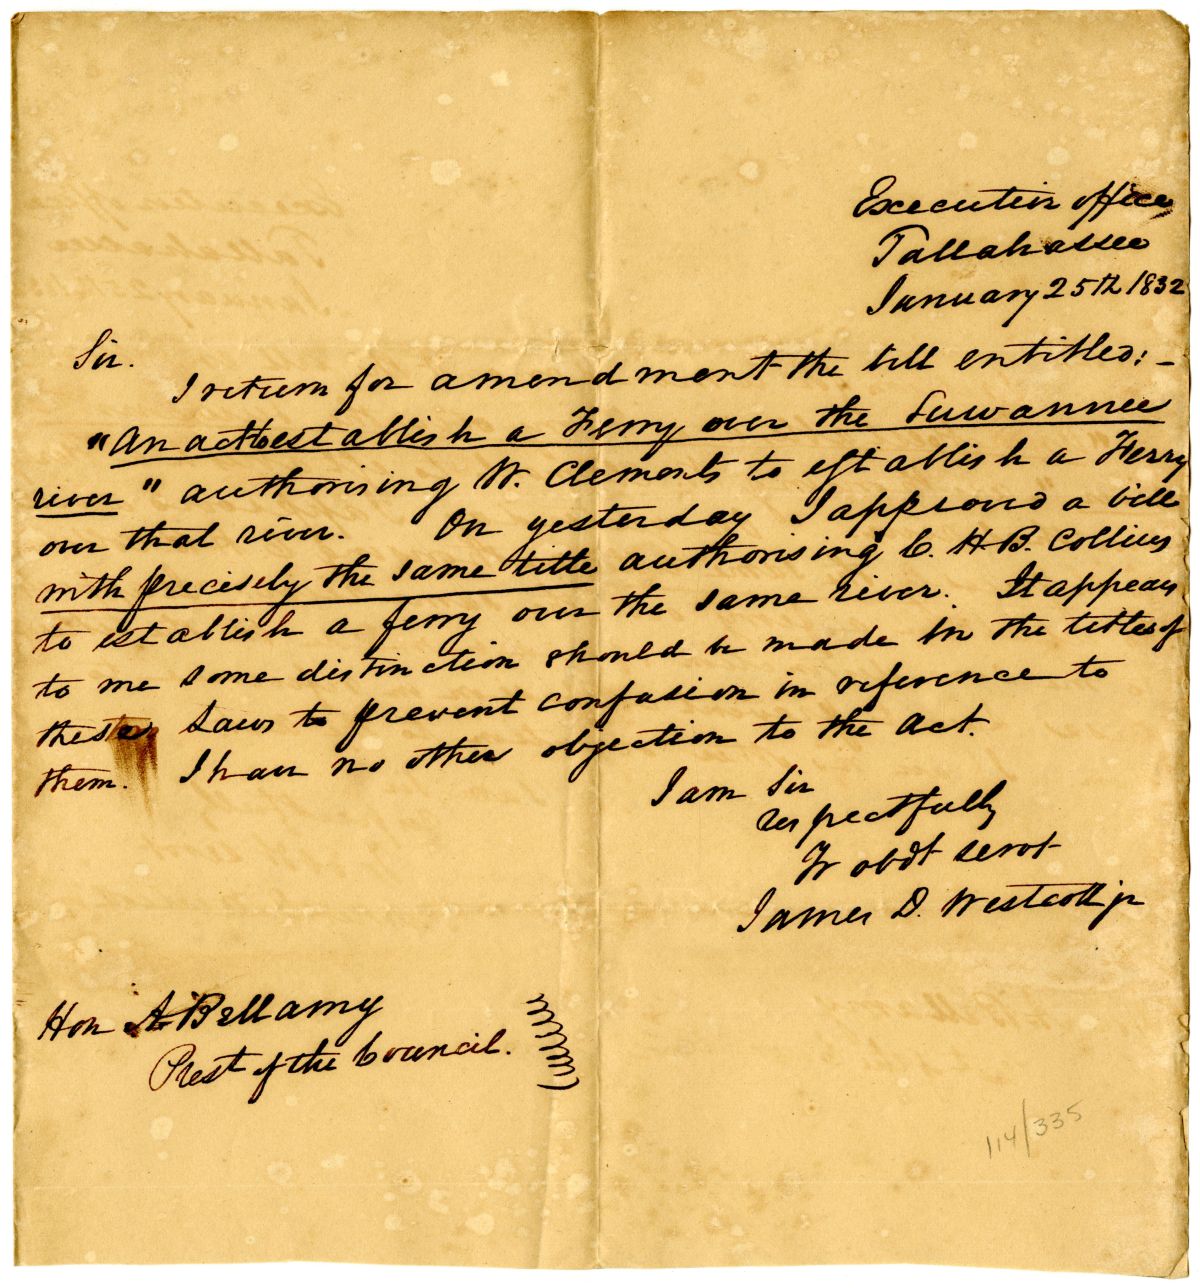 Executive office
Tallahassee
January 25th 1832
Sir.
I return for amendment the bill entitled: -
"An act to establish a Ferry over the Suwannee
river" authorising W. Clements to establish a Ferry
over that river. On yesterday I approved a bill
with precisely the same title authorising C. H. B. Collins
to establish a ferry over the same river. It appears
to me some distinction should be made in the titles of
these laws to prevent confusion in reference to
them. I have no other objection to the act.
I am Sir
respectfully
Yr obdt servt
James D. Westcott jr
Hon A Bellamy
Prest of the Council.
114/335